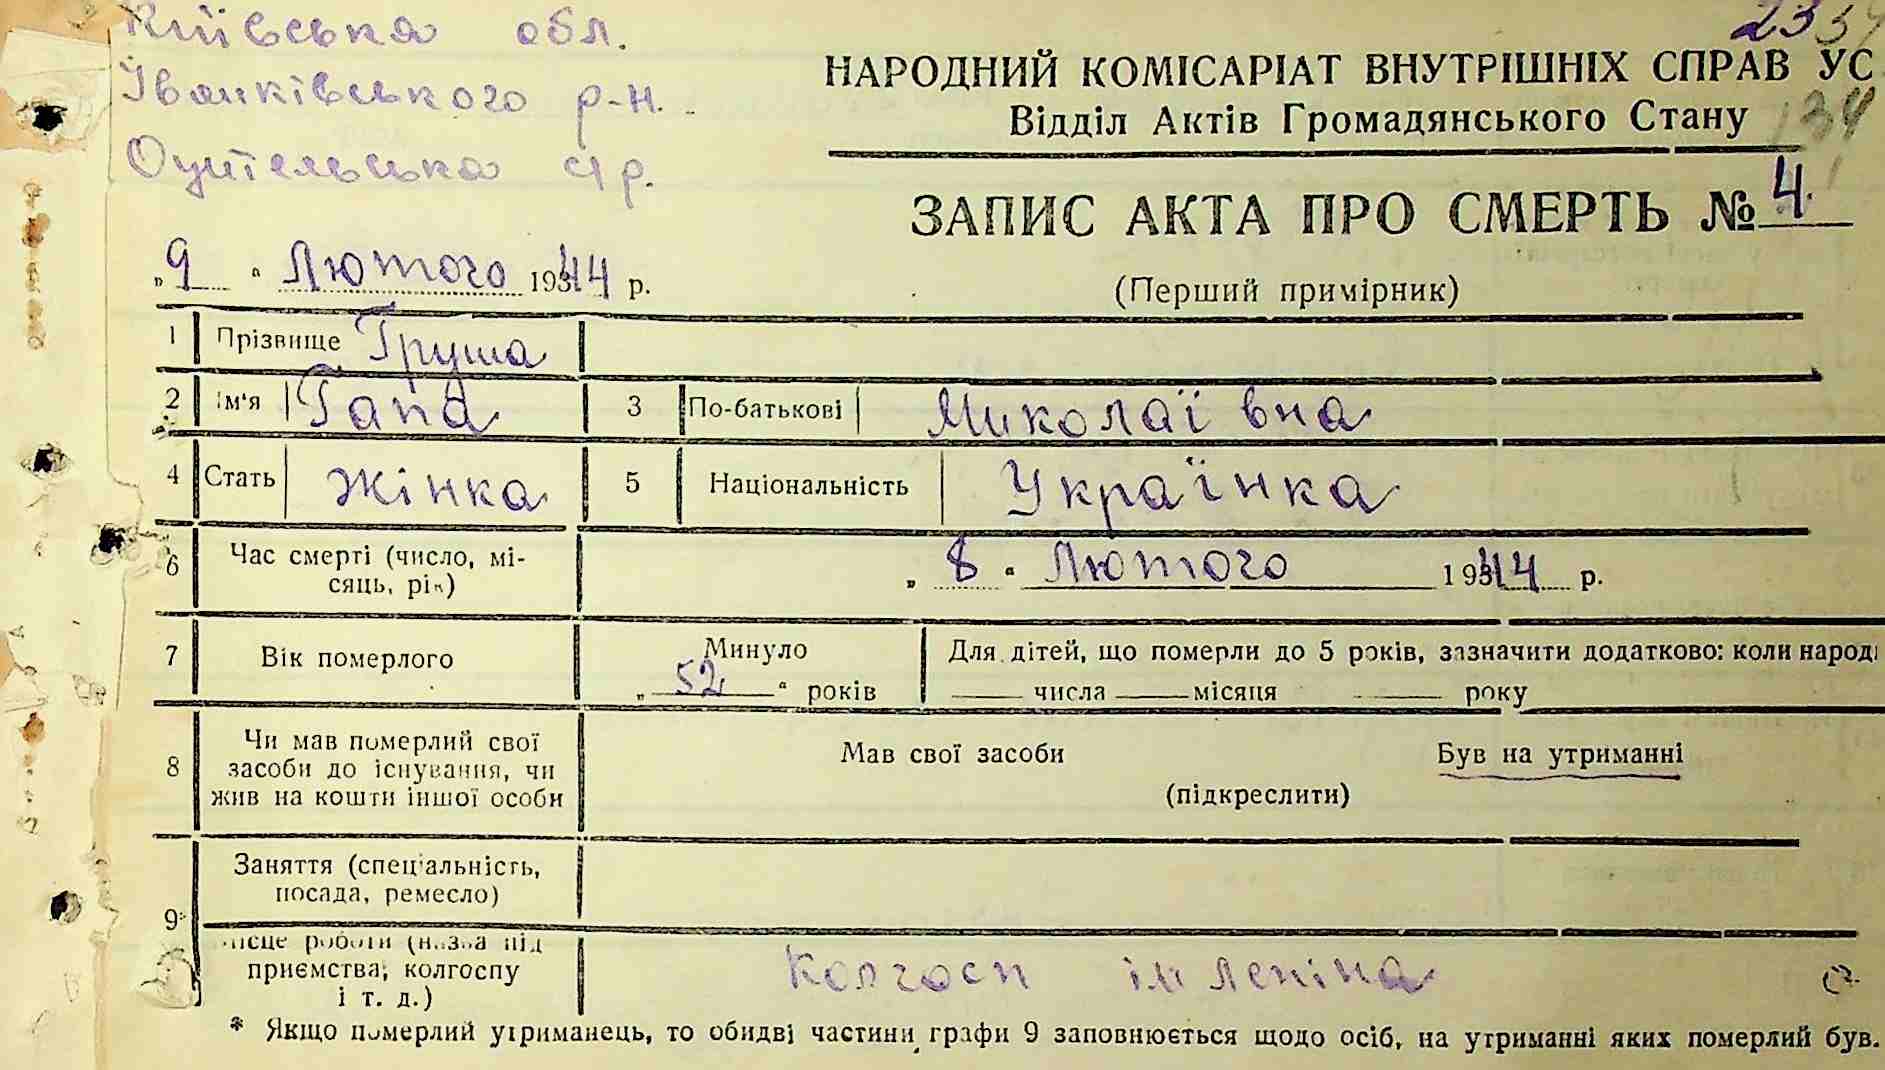 Київська обл.
Іванківського р-н.
Оцительська с/р.
23 34
134
НАРОДНИЙ КОМІСАРІАТ ВНУТРІШНІХ СПРАВ УС
Відділ Актів Громадянського Стану
ЗАПИС АКТА ПРО СМЕРТЬ № 4
„9“ Лютого 1944 р.
(Перший примірник)
1 Прізвище Груша
2 Ім'я Гапа 3 По-батькові Миколаївна
4 Стать Жінка 5 Національність Українка
6 Час смерті (число, мі-
сяць, рік) „8“ Лютого 1944 р.
7 Вік померлого Минуло „52“ років Для дітей, що померли до 5 років, зазначити додатково: коли народ
числа місяця року
8 Чи мав померлий свої
засоби до існування, чи
жив на кошти іншої особи
Мав свої засоби Був на утриманні
(підкреслити)
9 Заняття (спеціальність,
посада, ремесло)
Місце роботи (назва під
приємства, колгоспу
і т. д.) Колгосп ім Леніна
* Якщо померлий утриманець, то обидві частини графи 9 заповнюється щодо осіб, на утриманні яких померлий був.